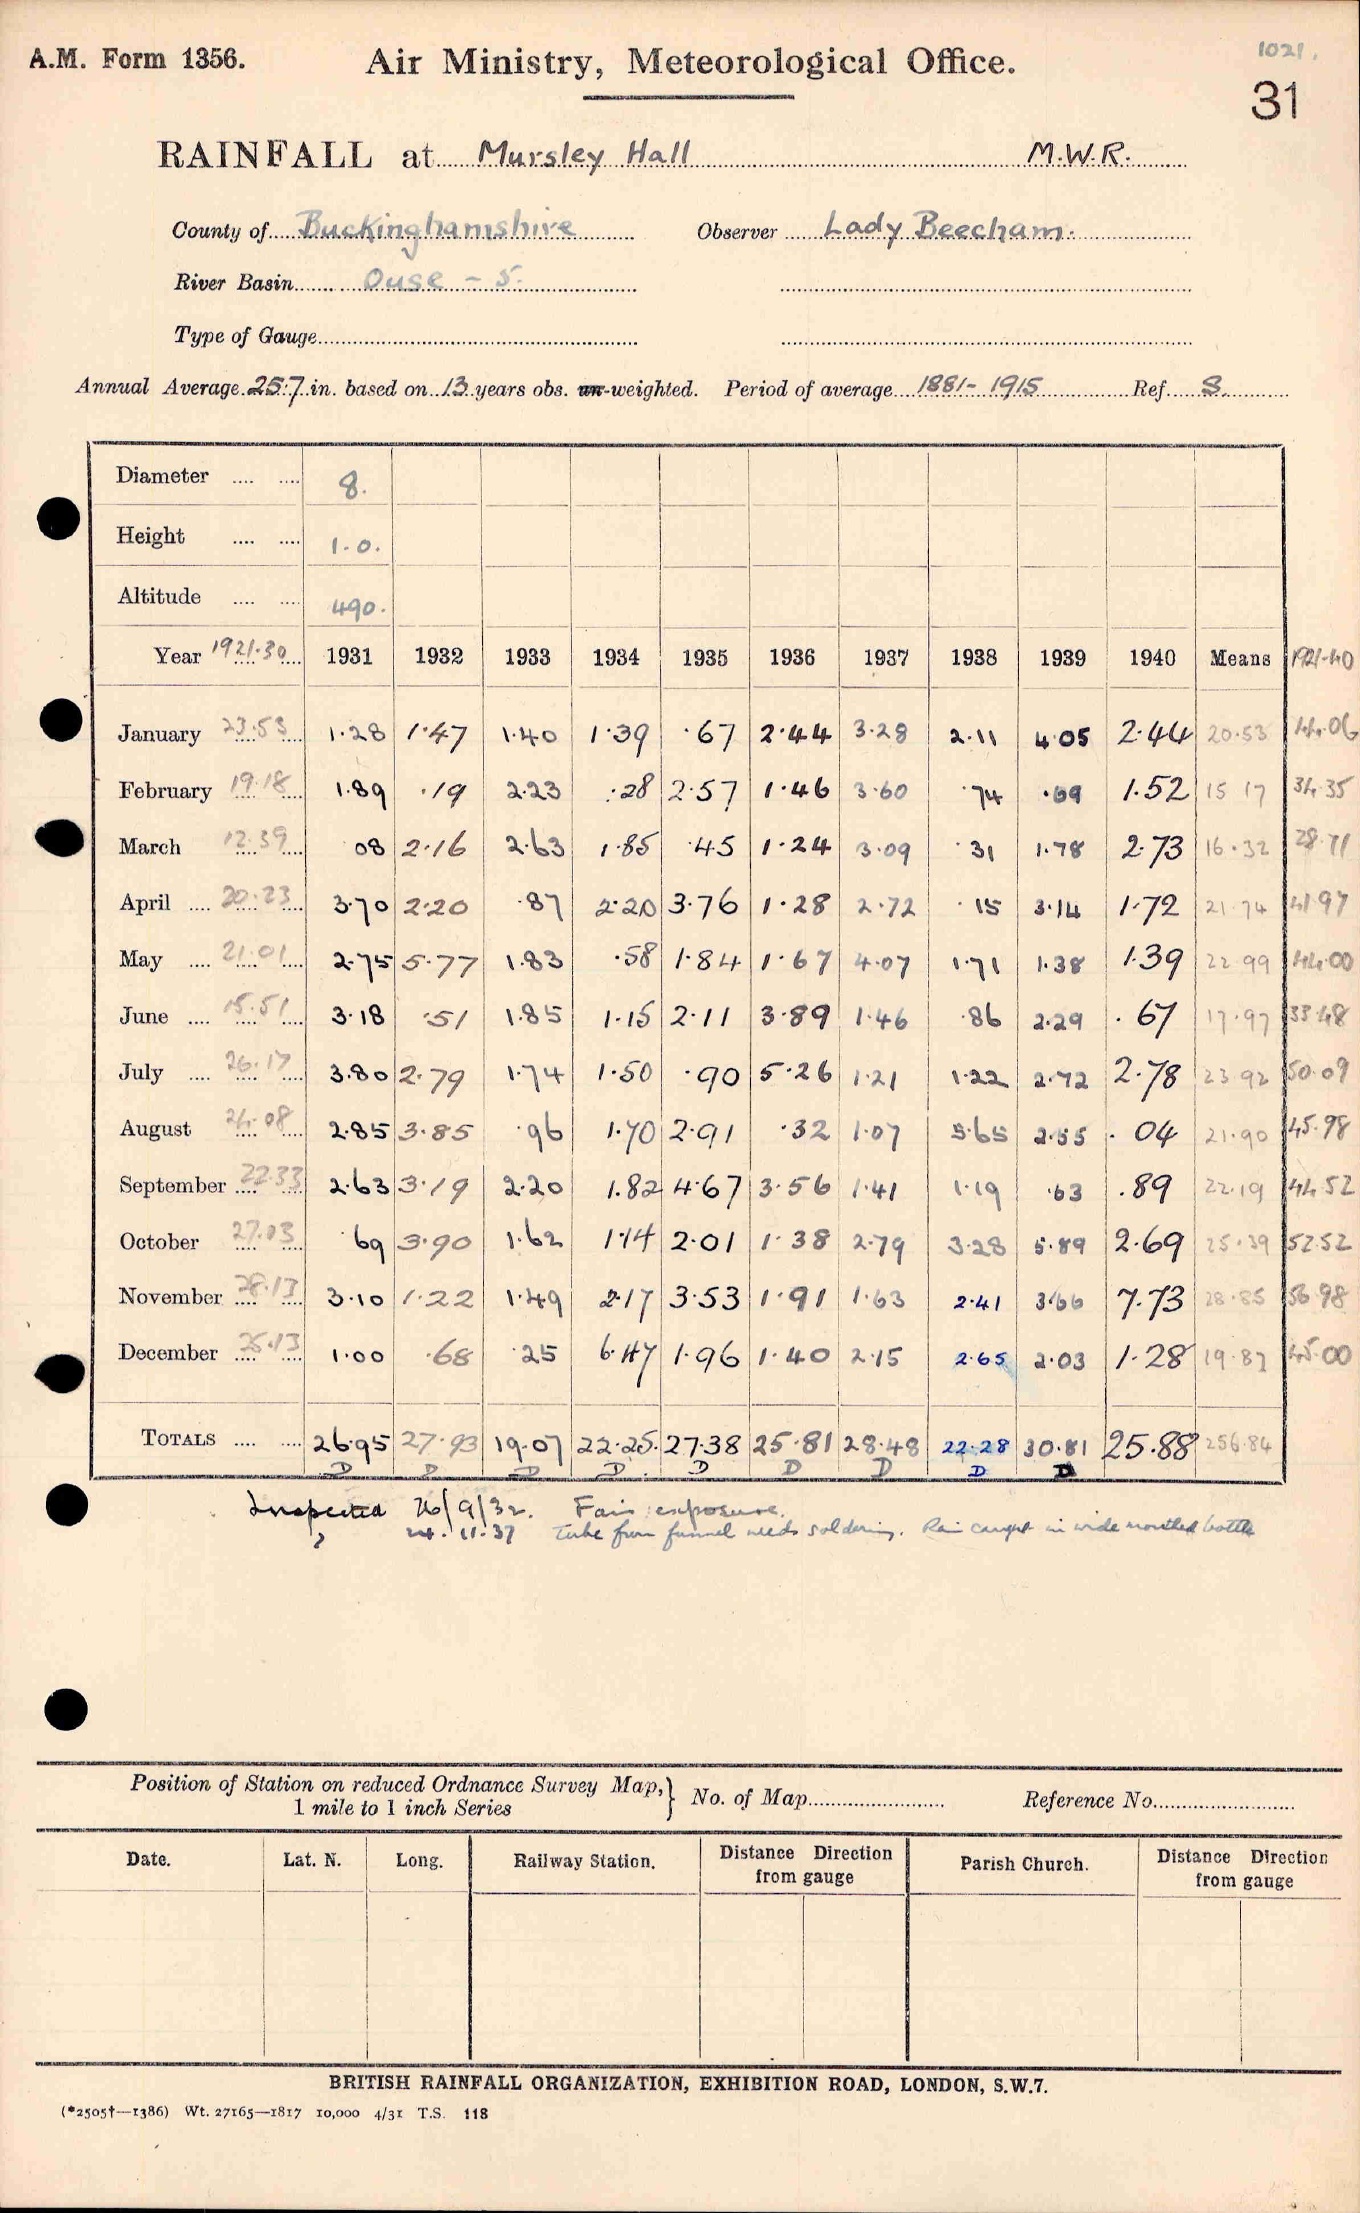 A.M. Form 1356. Air Ministry, Meteorological Office. 1021.
31
RAINFALL at Mursley Hall M.W.R.
County of Buckinghamshire Observer Lady Beecham.
River Basin Ouse - 5.
Type of Gauge
Annual Average 25.7 in. based on 13 years obs. un-weighted. Period of average 1881-1915 Ref. S.
Diameter 8.
Height 1.0.
Altitude 490.
Year 1921.30 1931 1932 1933 1934 1935 1936 1937 1938 1939 1940 Means 1921-40
January 23.53 1.28 1.47 1.40 1.39 .67 2.44 3.28 2.11 4.05 2.44 20.53 44.06
February 19.18 1.89 .19 2.23 .28 2.57 1.46 3.60 .74 .69 1.52 15 17 34.35
March 12.39 08 2.16 2.63 1.85 .45 1.24 3.09 .31 1.78 2.73 16.32 28.71
April 20.23 3.70 2.20 .87 2.20 3.76 1.28 2.72 .15 3.14 1.72 21.74 41.97
May 21.01 2.75 5.77 1.83 .58 1.84 1.67 4.07 1.71 1.38 1.39 22 99 44.00
June 15.51 3.18 .51 1.85 1.15 2.11 3.89 1.46 .86 2.29 .67 17.97 33.48
July 26.17 3.80 2.79 1.74 1.50 .90 5.26 1.21 1.22 2.72 2.78 23 92 50.09
August 24.08 2.85 3.85 .96 1.70 2.91 .32 1.07 5.65 2.55 .04 21.90 45.98
September 22.33 2.63 3.19 2.20 1.82 4.67 3.56 1.41 1.19 .63 .89 22.19 44.52
October 27.03 .69 3.90 1.62 1.14 2.01 1.38 2.79 3.28 5.89 2.69 25.39 52.52
November 28.13 3.10 1.22 1.49 2.17 3.53 1.91 1.63 2.41 3.66 7.73 28.85 56.98
December 25.13 1.00 .68 .25 6.47 1.96 1.40 2.15 2.65 2.03 1.28 19.87 45.00
TOTALS 26.95 27.93 19.07 22.25. 27.38 25.81 28.48 22.28 30.81 25.88 256.84
D D D D D D D D D
Inspected 26/9/32. Fair exposure.
" 24.11.37 Tube from funnel needs soldering. Rain caught in wide mouthed bottle
Position of Station on reduced Ordnance Survey Map, 1 mile to 1 inch Series } No. of Map Reference No.
Date. Lat. N. Long. Railway Station. Distance Direction from gauge Parish Church. Distance Direction from gauge
BRITISH RAINFALL ORGANIZATION, EXHIBITION ROAD, LONDON, S.W.7.
(*2505†—1386) Wt. 27165—1817 10,000 4/31 T.S. 118